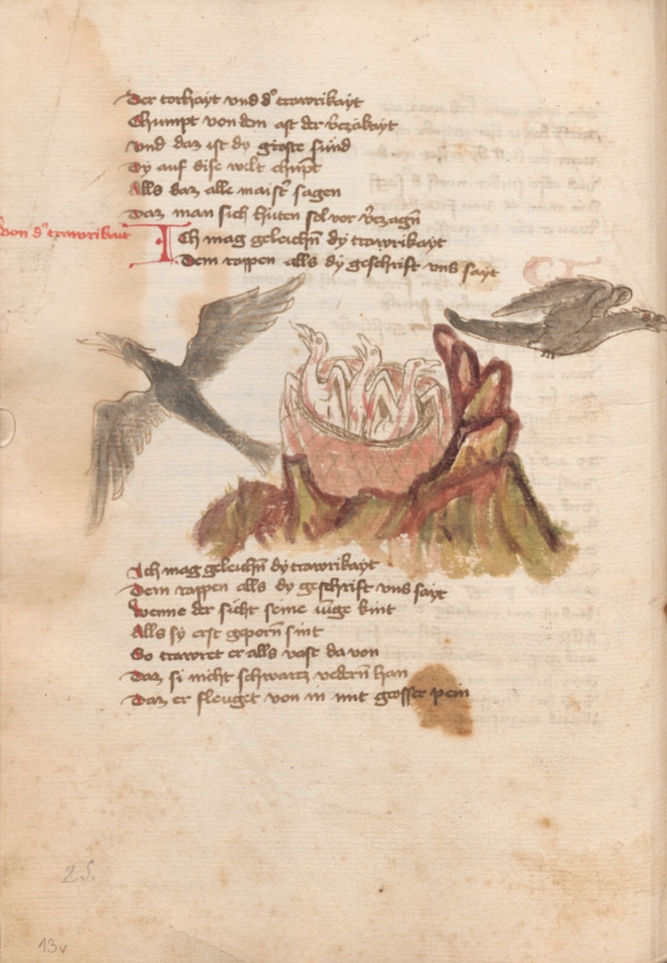 Der torhayt vnd d' trawrikayt
Chumpt von dem ast der v̄zakayt
vnd daz ist dy groste sünd
Dy auf dise welt chūpt
Alls daz alle maist' sagen
Daz man sich hüten sol vor v̄zagn̄
von d' trawrikait
Ich mag geleichn̄ dy trawrikayt
Dem rappen alls dy geschrift vns sayt
Ich mag geleichn̄ dy trawrikayt
Dem rappen alls dy geschrift vns sayt
wenne der sicht seine iūge kint
Alls sy erst geporn̄ sint
So trawret er alls vast da von
Daz si nicht schwartz vedern̄ han
Daz er fleuget von in mit grosser pein
25.
13v